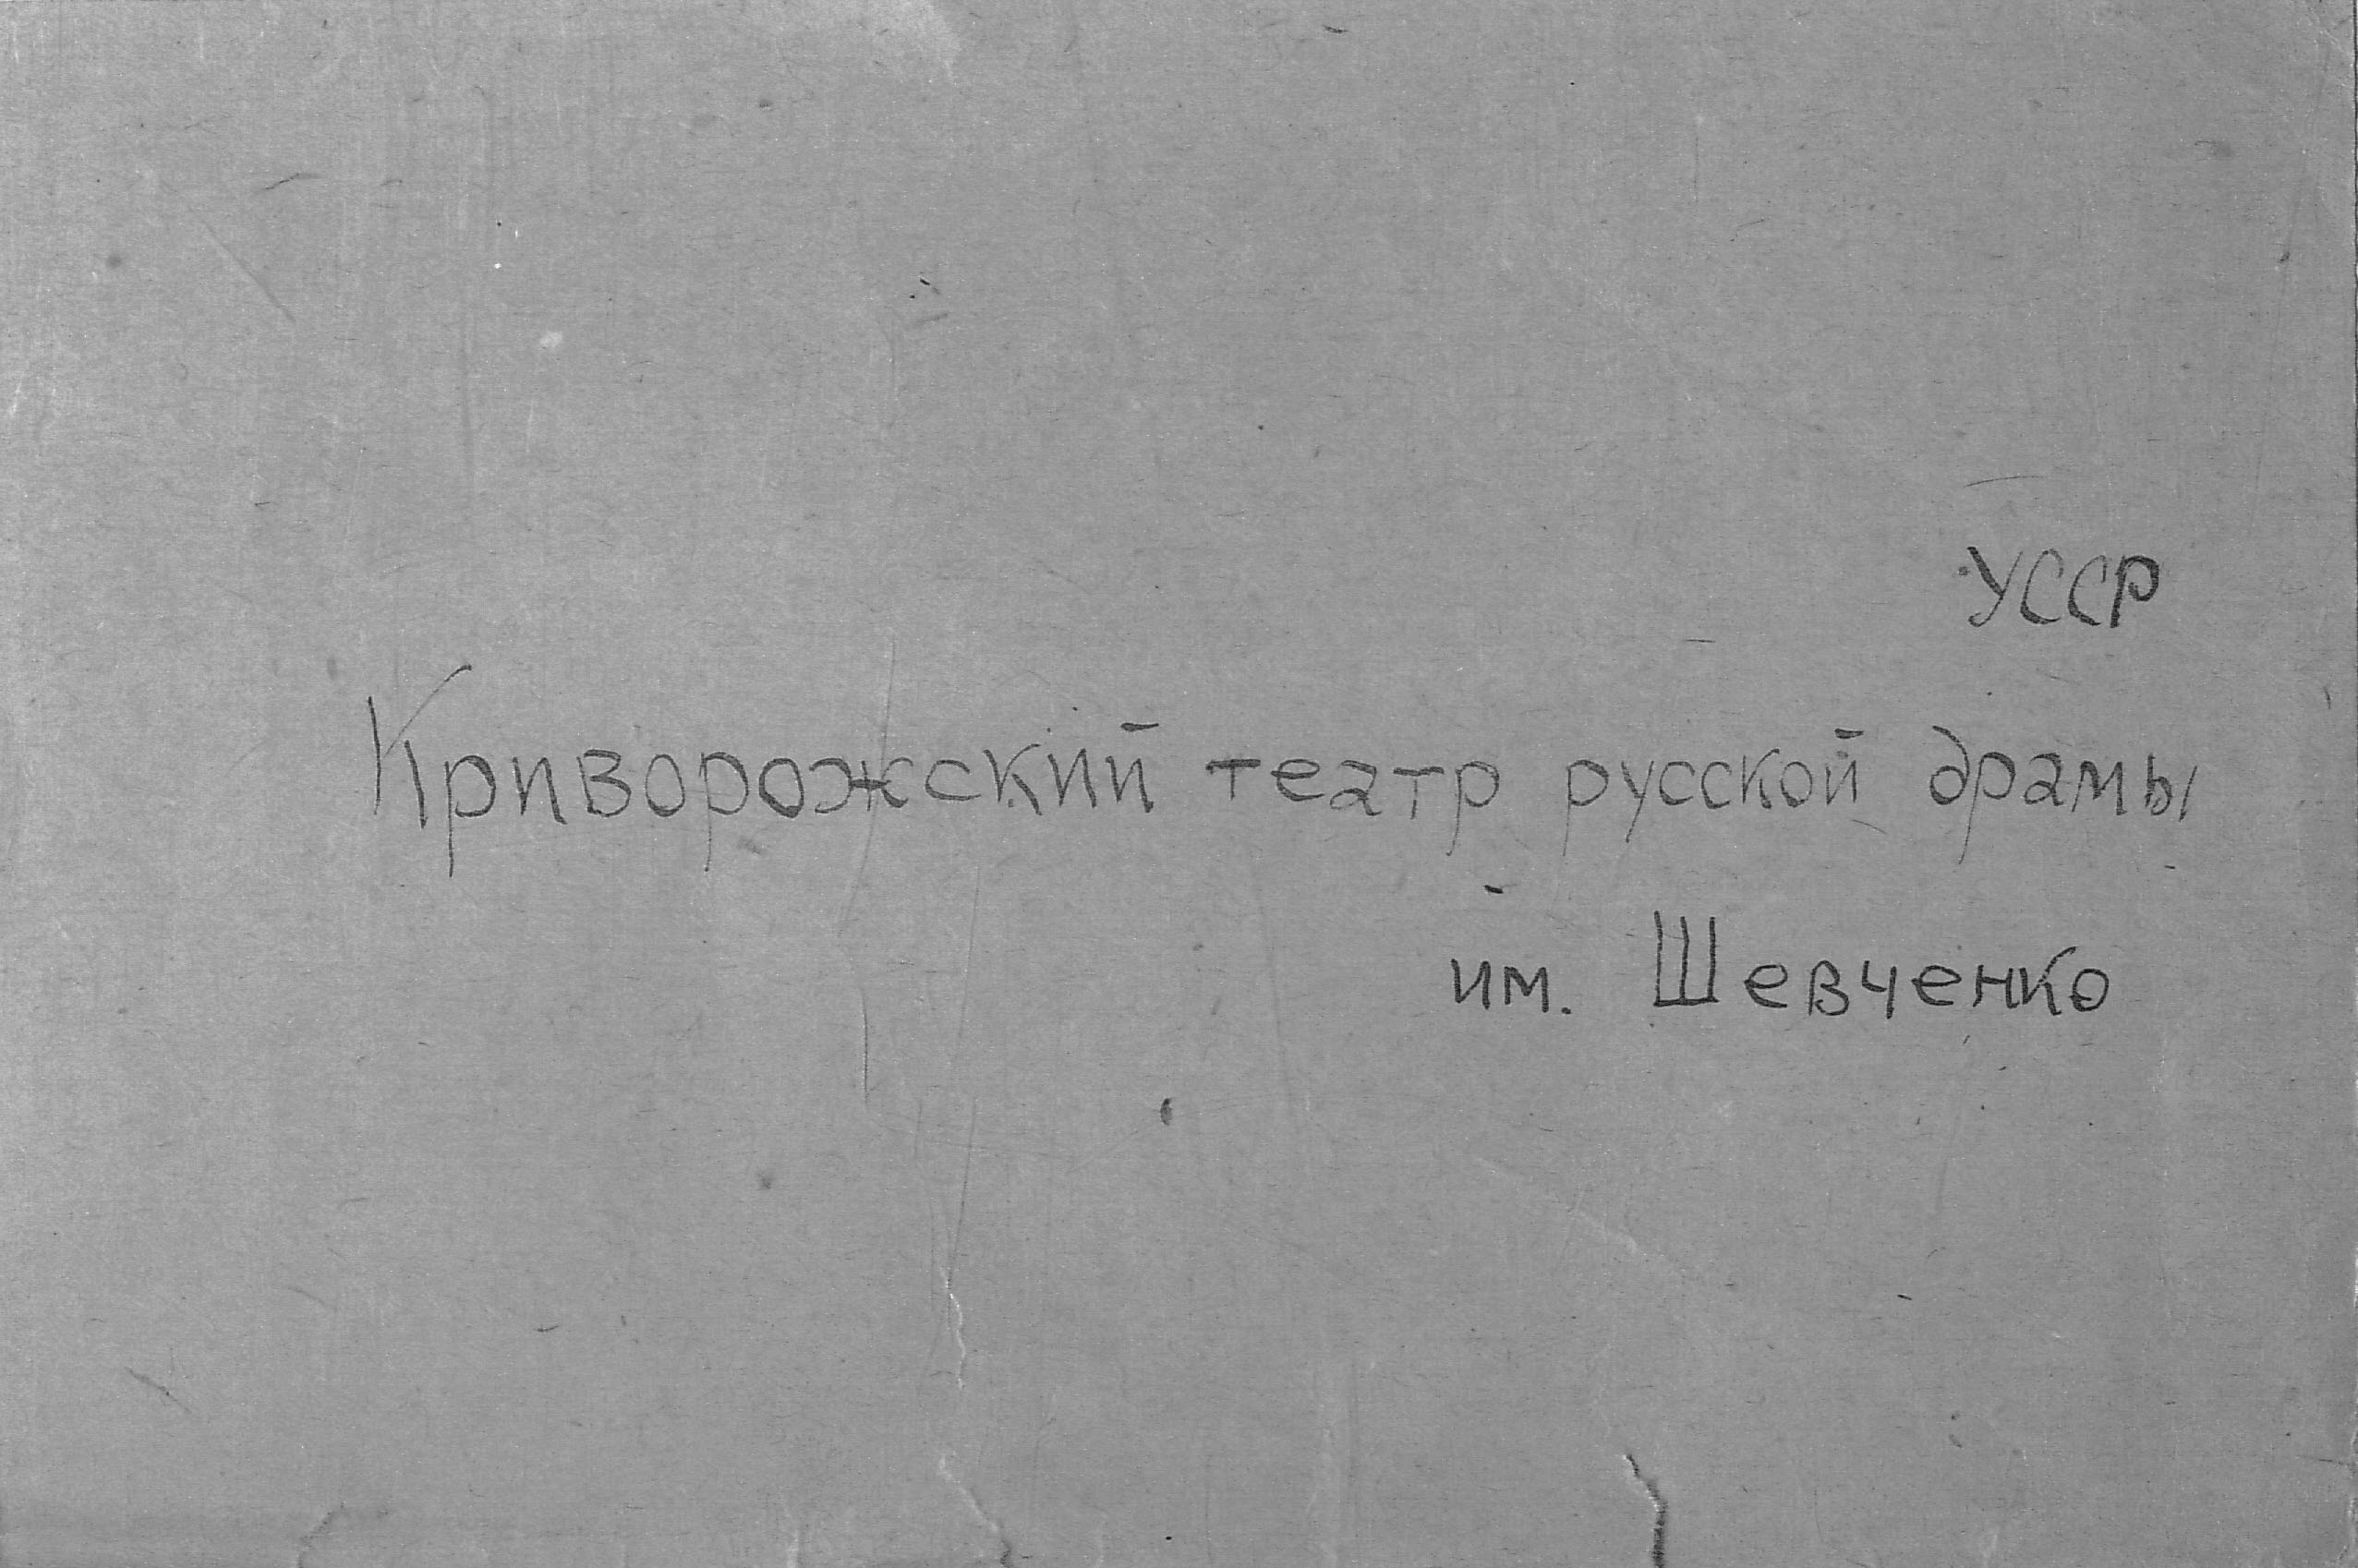 УССР
Криворожский театр русской драмы
им. Шевченко